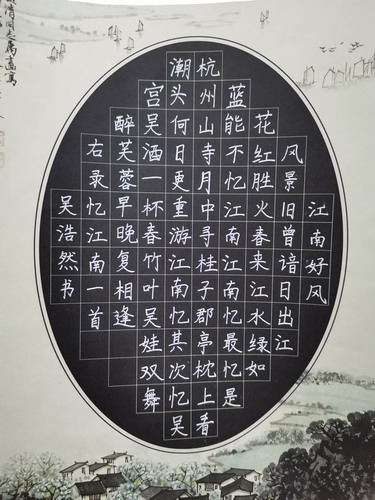 江南好风
风景旧曾谙日出江
花红胜火春来江水绿如
蓝能不忆江南江南忆最忆是
杭州山寺月中寻桂子郡亭枕上看
潮头何日更重游江南忆其次忆吴
宫吴酒一杯春竹叶吴娃双舞
醉芙蓉早晚复相逢
右录忆江南一首
吴浩然书